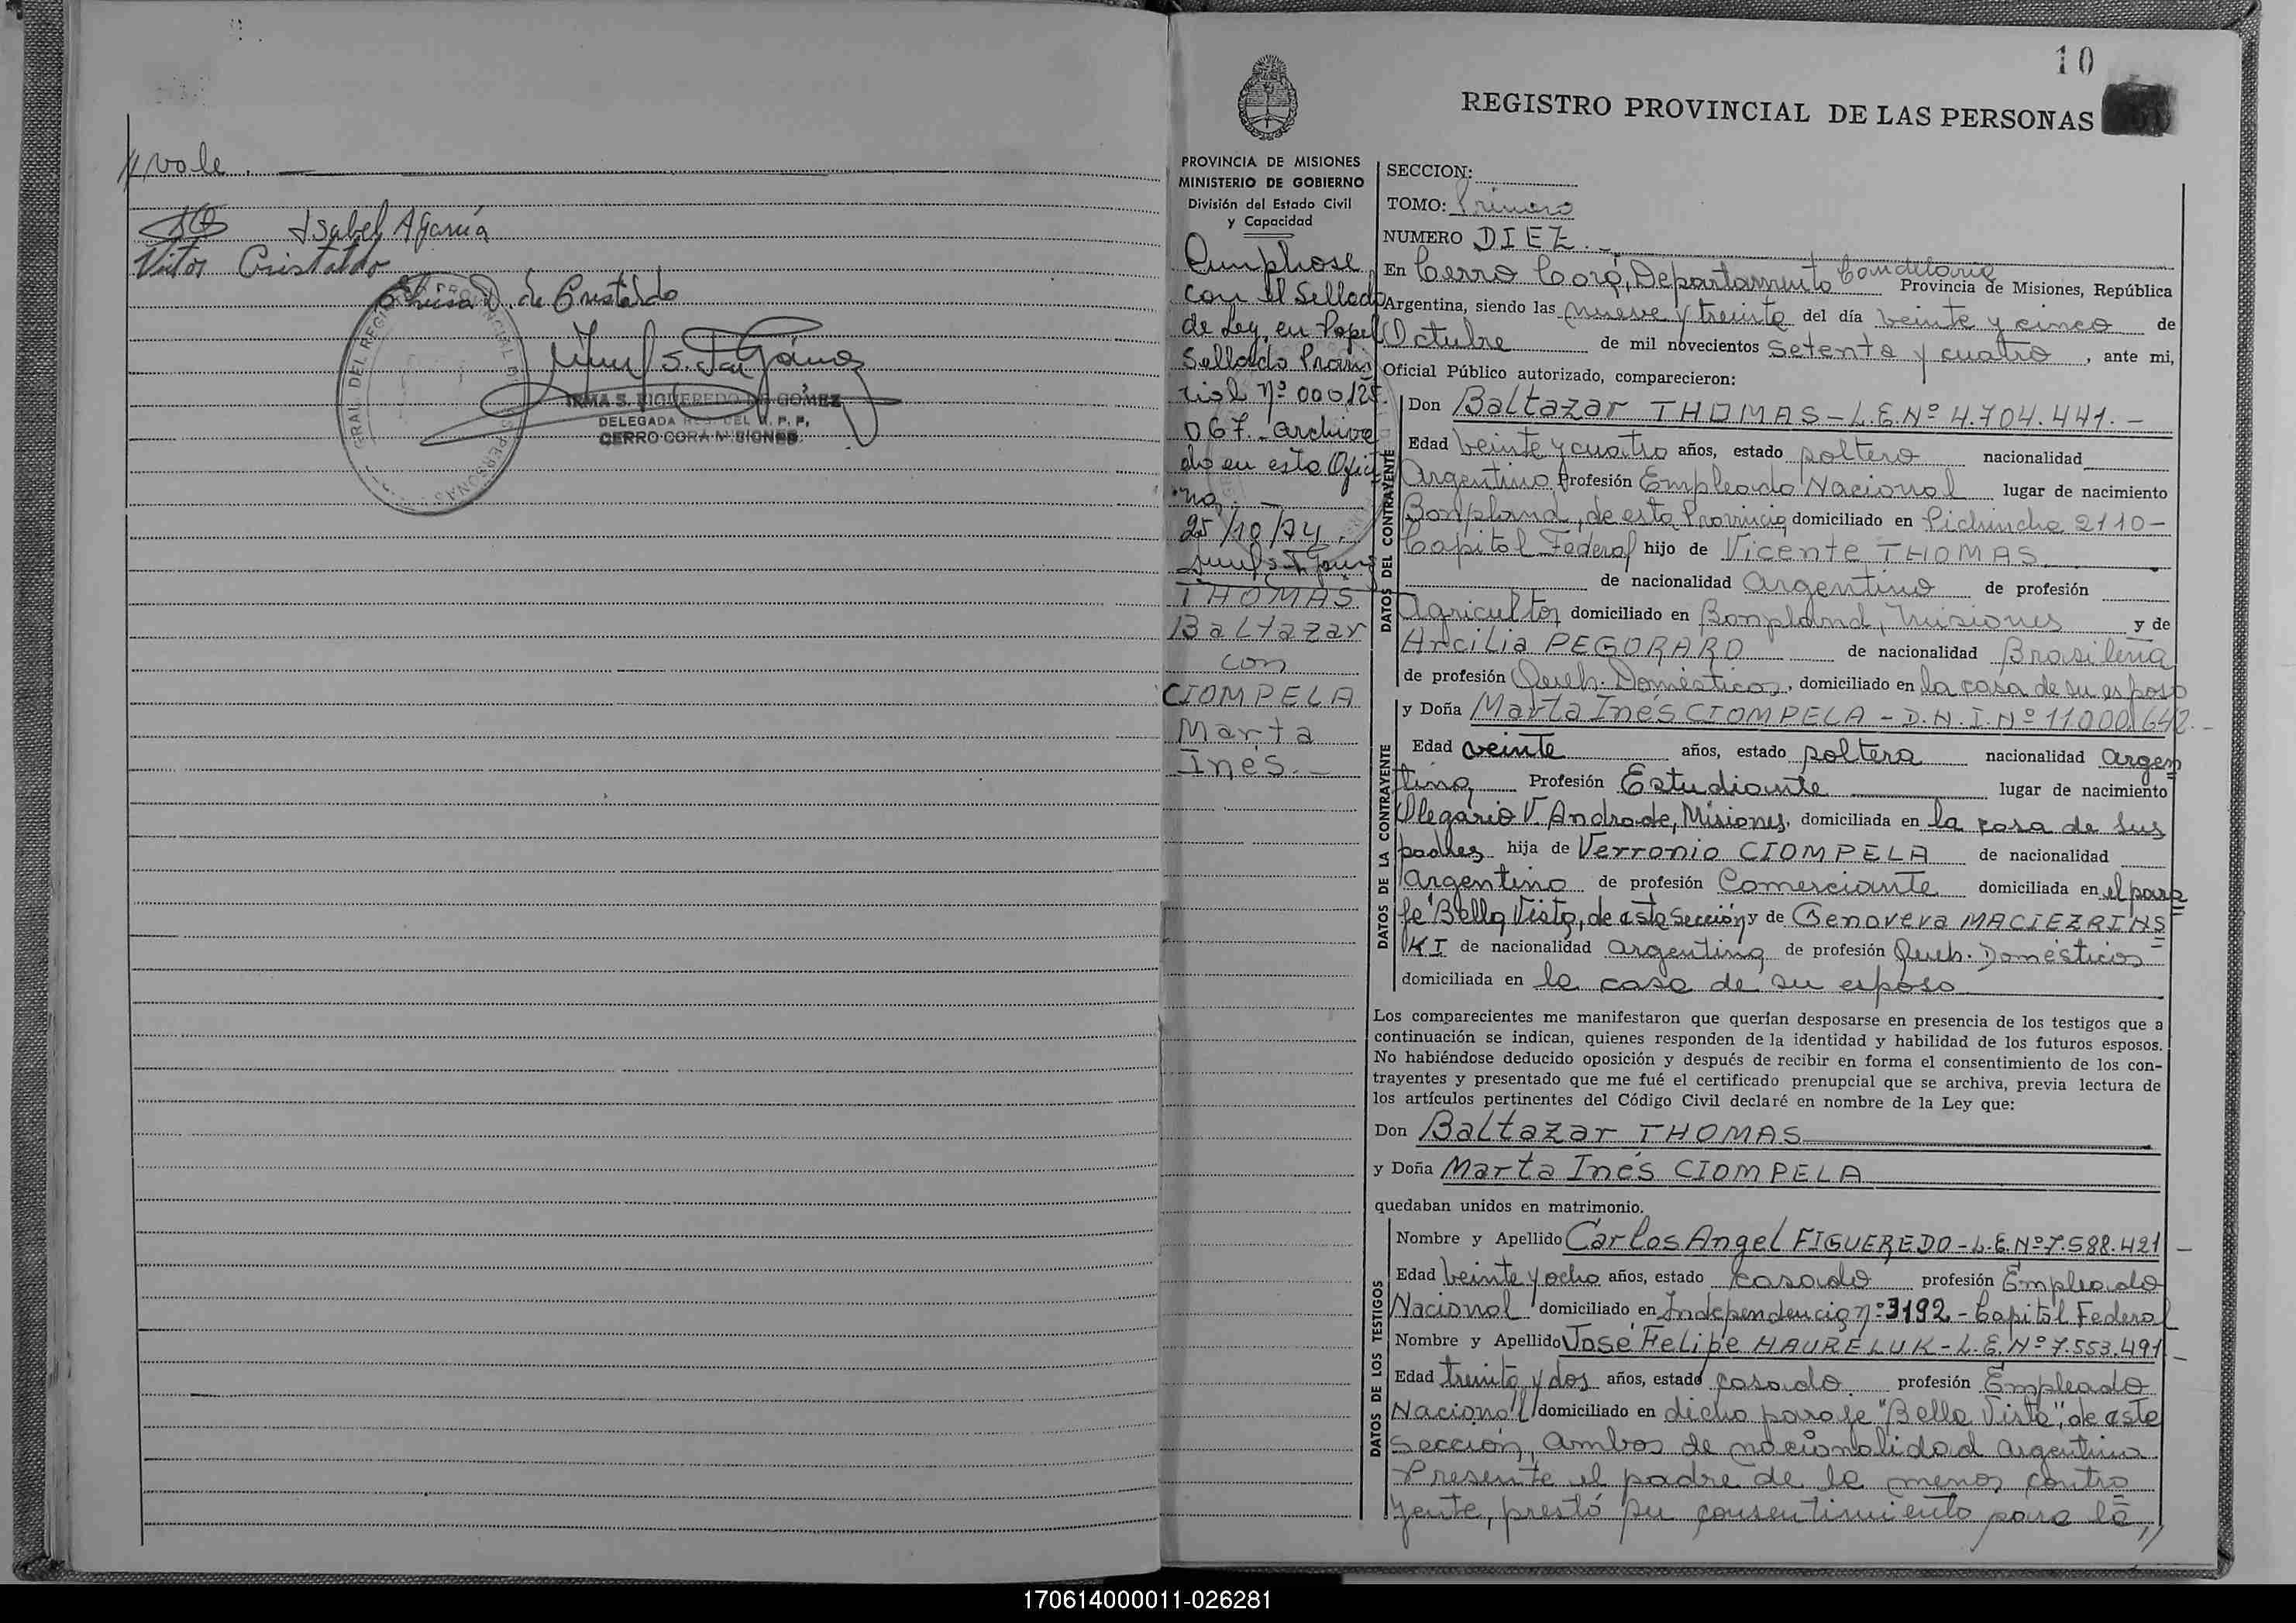 // vale.
Isabel A García
Vitor Cristaldo
de Cristaldo
IRMA S. FIGUEREDO DE GOMEZ
DELEGADA REG. DEL R. P. P.
CERRO CORA MISIONES
10
REGISTRO PROVINCIAL DE LAS PERSONAS
PROVINCIA DE MISIONES
MINISTERIO DE GOBIERNO
División del Estado Civil
y Capacidad
Cumplióse
con el Sellado
de Ley, en Papel
Sellado Provin
cial Nº 000125
067.- archiva
do en esta Ofici
na. -
25/10/74.
THOMAS
Baltazar
con
CIOMPELA
Marta
Inés. -
SECCION:
TOMO: Primero
NUMERO DIEZ. -
En Cerro Corá, Departamento Candelaria Provincia de Misiones, República
Argentina, siendo las nueve y treinta del día veinte y cinco de
Octubre de mil novecientos setenta y cuatro, ante mi,
Oficial Público autorizado, comparecieron:
DATOS DEL CONTRAYENTE
Don Baltazar THOMAS - L.E. Nº 4.704.441. -
Edad veinte y cuatro años, estado soltero nacionalidad
Argentino, Profesión Empleado Nacional lugar de nacimiento
Bonpland, de esta Provincia domiciliado en Pichincha 2110-
Capital Federal hijo de Vicente THOMAS
de nacionalidad argentino de profesión
Agricultor domiciliado en Bonpland, Misiones y de
Ancilia PEGORARO de nacionalidad Brasileña
de profesión Queh. Domésticos, domiciliado en la casa de su esposo
DATOS DE LA CONTRAYENTE
y Doña Marta Inés CIOMPELA - D.N.I. Nº 11.000.642. -
Edad veinte años, estado soltera nacionalidad argen
tina, Profesión Estudiante lugar de nacimiento
Olegario V. Andrade, Misiones, domiciliada en la casa de sus
padres hija de Verronio CIOMPELA de nacionalidad
argentino de profesión Comerciante domiciliada en el para
je "Bella Vista, de esta Sección y de Genoveva MACIEZRINS
KI de nacionalidad argentina de profesión Queh. Domésticos
domiciliada en la casa de su esposo
Los comparecientes me manifestaron que querían desposarse en presencia de los testigos que a
continuación se indican, quienes responden de la identidad y habilidad de los futuros esposos.
No habiéndose deducido oposición y después de recibir en forma el consentimiento de los con-
trayentes y presentado que me fué el certificado prenupcial que se archiva, previa lectura de
los artículos pertinentes del Código Civil declaré en nombre de la Ley que:
Don Baltazar THOMAS
y Doña Marta Inés CIOMPELA
quedaban unidos en matrimonio.
DATOS DE LOS TESTIGOS
Nombre y Apellido Carlos Angel FIGUEREDO - L.E. Nº 7.588.421 -
Edad veinte y ocho años, estado casado profesión Empleado
Nacional domiciliado en Independencia nº 3192 - Capital Federal
Nombre y Apellido José Felipe HAURELUK - L.E. Nº 7.553.491 -
Edad treinta y dos años, estado casado profesión Empleado
Nacional domiciliado en dicho paraje "Bella Vista", de esta
Sección, ambos de nacionalidad argentina
Presente el padre de la menor contra
yente, prestó su consentimiento para la //
170614000011-026281